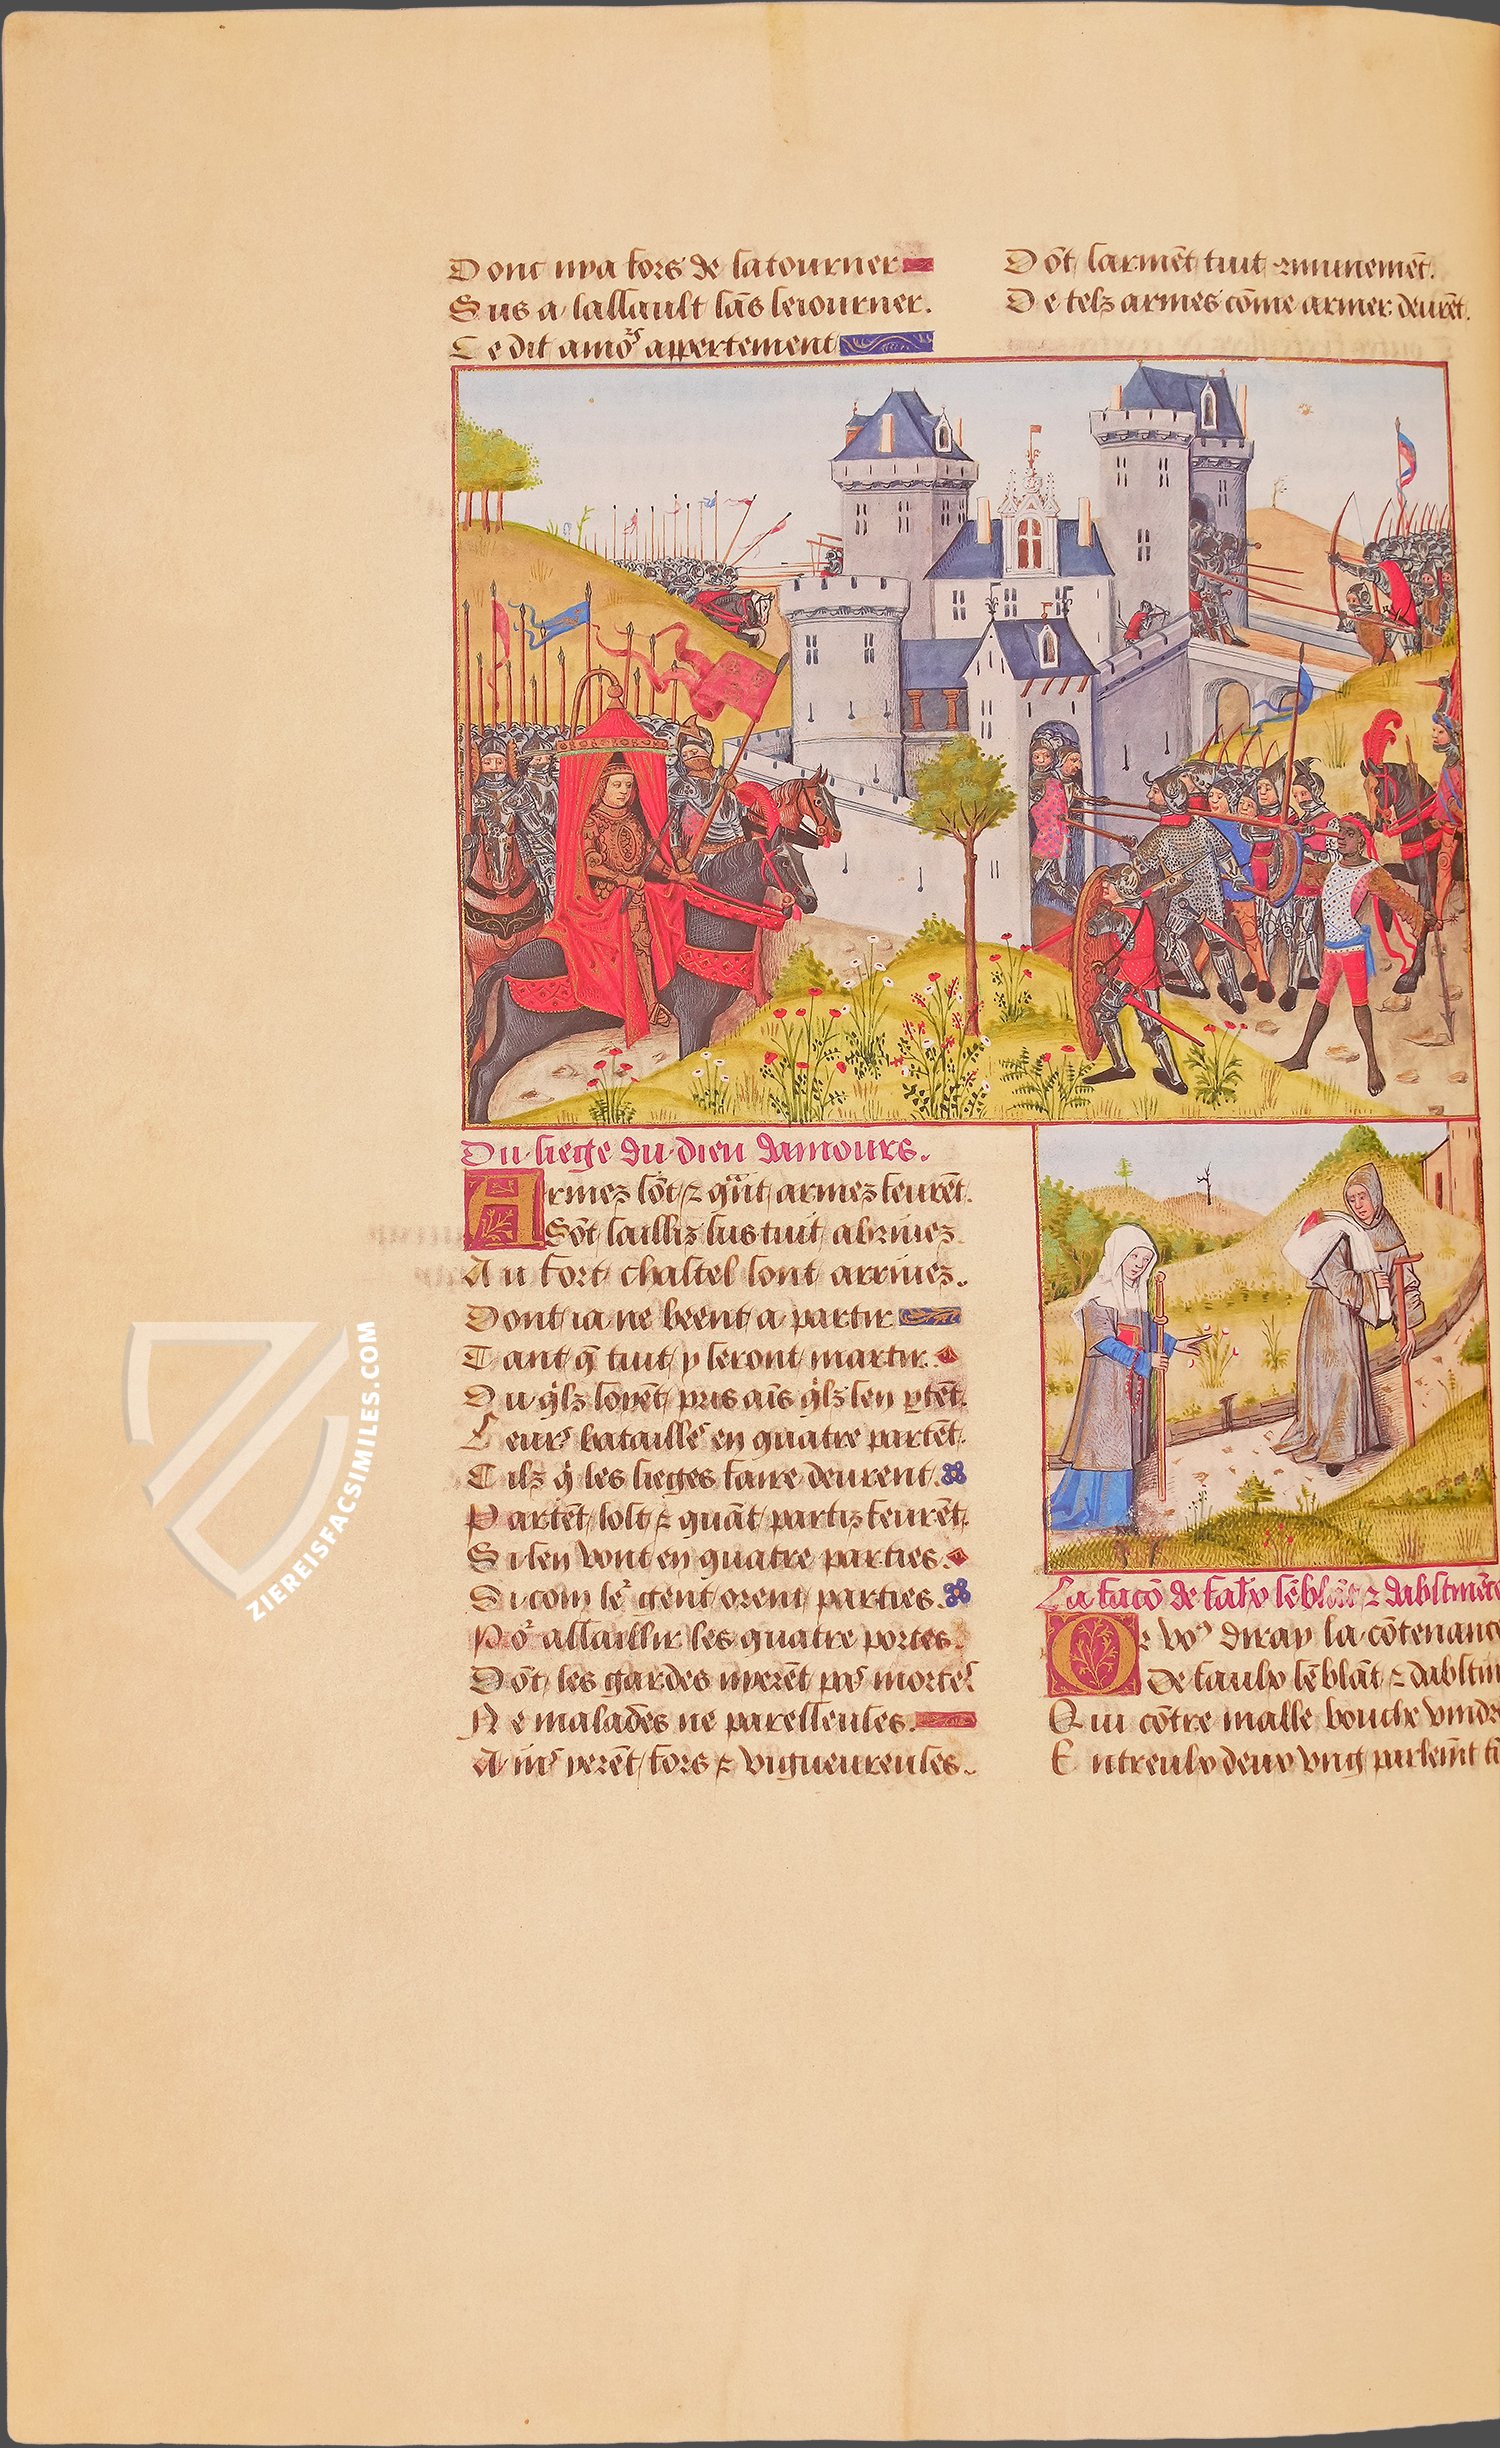 Donc nya fors de latourner
Sus a lassault sãs seiourner.
Ce dit amo᷑s appertement
Dõt sarmẽt tuit cõmunemẽt.
De telz armes cõme armer deurẽt.
Du siege du dieu damours.
Armez sõt ⁊ quãt armez feurẽt.
Sõt sailliz sus tuit abriuez.
Au fort chastel sont arriuez.
Dont ia ne beent a partir
Tant q̃ tuit y seront martir.
Ou qͥlz soyẽt pris ais qͥlz sen ptẽt.
Leurs bataillẽs en quatre partẽt.
Cilz qͥ les sieges faire deurent.
Partẽt lost ⁊ quãt partiz feurẽt.
Si sen vont en quatre parties.
Si com lẽ gent orent parties.
Po᷑ assaillir les quatre portes.
Dõt les gardes nyerẽt pas mortes
Ne malades ne paresseuses.
Ains yerẽt fors ⁊ vigueureuses.
La facõ de faulx sẽblãt ⁊ dabstinẽce
Or vo᷒ diray la cõtenance
De faulx sẽblãt ⁊ dabstin
Qui cõtre malle bouche vindr
Entreulx deux vng parlemt ti
ZIEREISFACSIMILES.COM